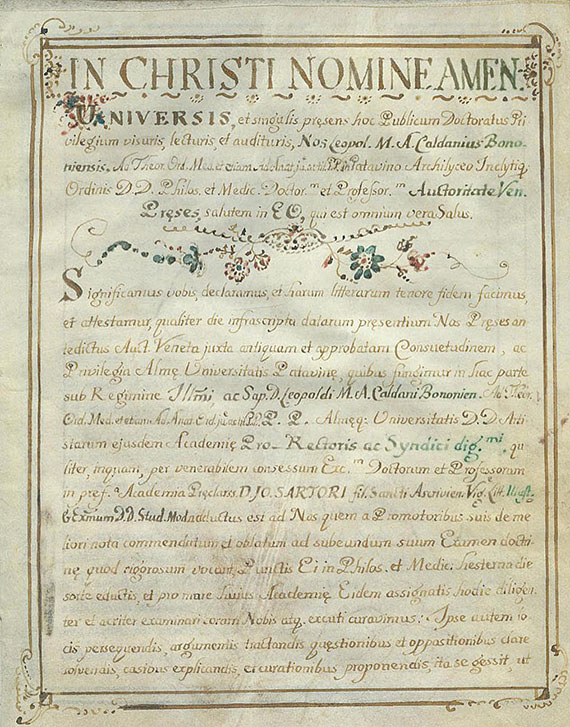 IN CHRISTI NOMINE AMEN.
UNIVERSIS, et singulis præsens hoc Publicum Doctoratus Pri
vilegium visuris, lecturis et audituris, Nos Leopol. M. A. Caldanius Bono
niensis. Ad Theor. Ord. Med. et etiam Ad Anat. Patavino Archilyceo Inclytiq.
Ordinis D. D. Philos. et Medic. Doctor.m et Profeſsor.m Auctoritate Ven.
Pręses, salutem in EO, qui est omnium vera Salus.
Significamus vobis, declaramus, et harum litterarum tenore fidem facimus,
et attestamur, qualiter die infrascripta datarum pręsentium Nos Pręses an
tedictus Auct. Veneta juxta antiquam et approbatam Consuetudinem, ac
Privilegia Almę Universitatis Patavinę, quibus fungimur in hac parte
sub Regimine Illmi ac Sap. D. Leopoldi M. A. Caldani Bononien. Ad Theor.
Ord. Med. et etiam Ad Anat. P. P. Almęq; Universitatis D. D. Arti
starum ejusdem Academię Pro-Rectoris ac Syndici dig.mi, qu
liter inquam, per venerabilem consessum Exc.m Doctorum et Professorum
in pref.a Academia Pręclaris. D. JO. SARTORI fil. Sancti Ascivien. Vig. Litt.
& Exmium D. D. Stud. Mod. adductus est ad Nos quem a Promotoribus suis de me
liori nota commendatum et oblatum ad subeundum suum Examen doctri
nę quod rigorosum vocant, Punctis Ei in Philos. et Medic. hesterna die
sorte eductis, et pro more hujus Academię Eidem assignatis hodie diligen
ter et acriter examinari coram Nobis atq. excuti curavimus: Ipse autem lo
cis persequendis, argumentis tractandis, quęstionibus et oppositionibus clare
solvendis, casibus explicandis, et curationibus proponendis, ita se gessit, ut